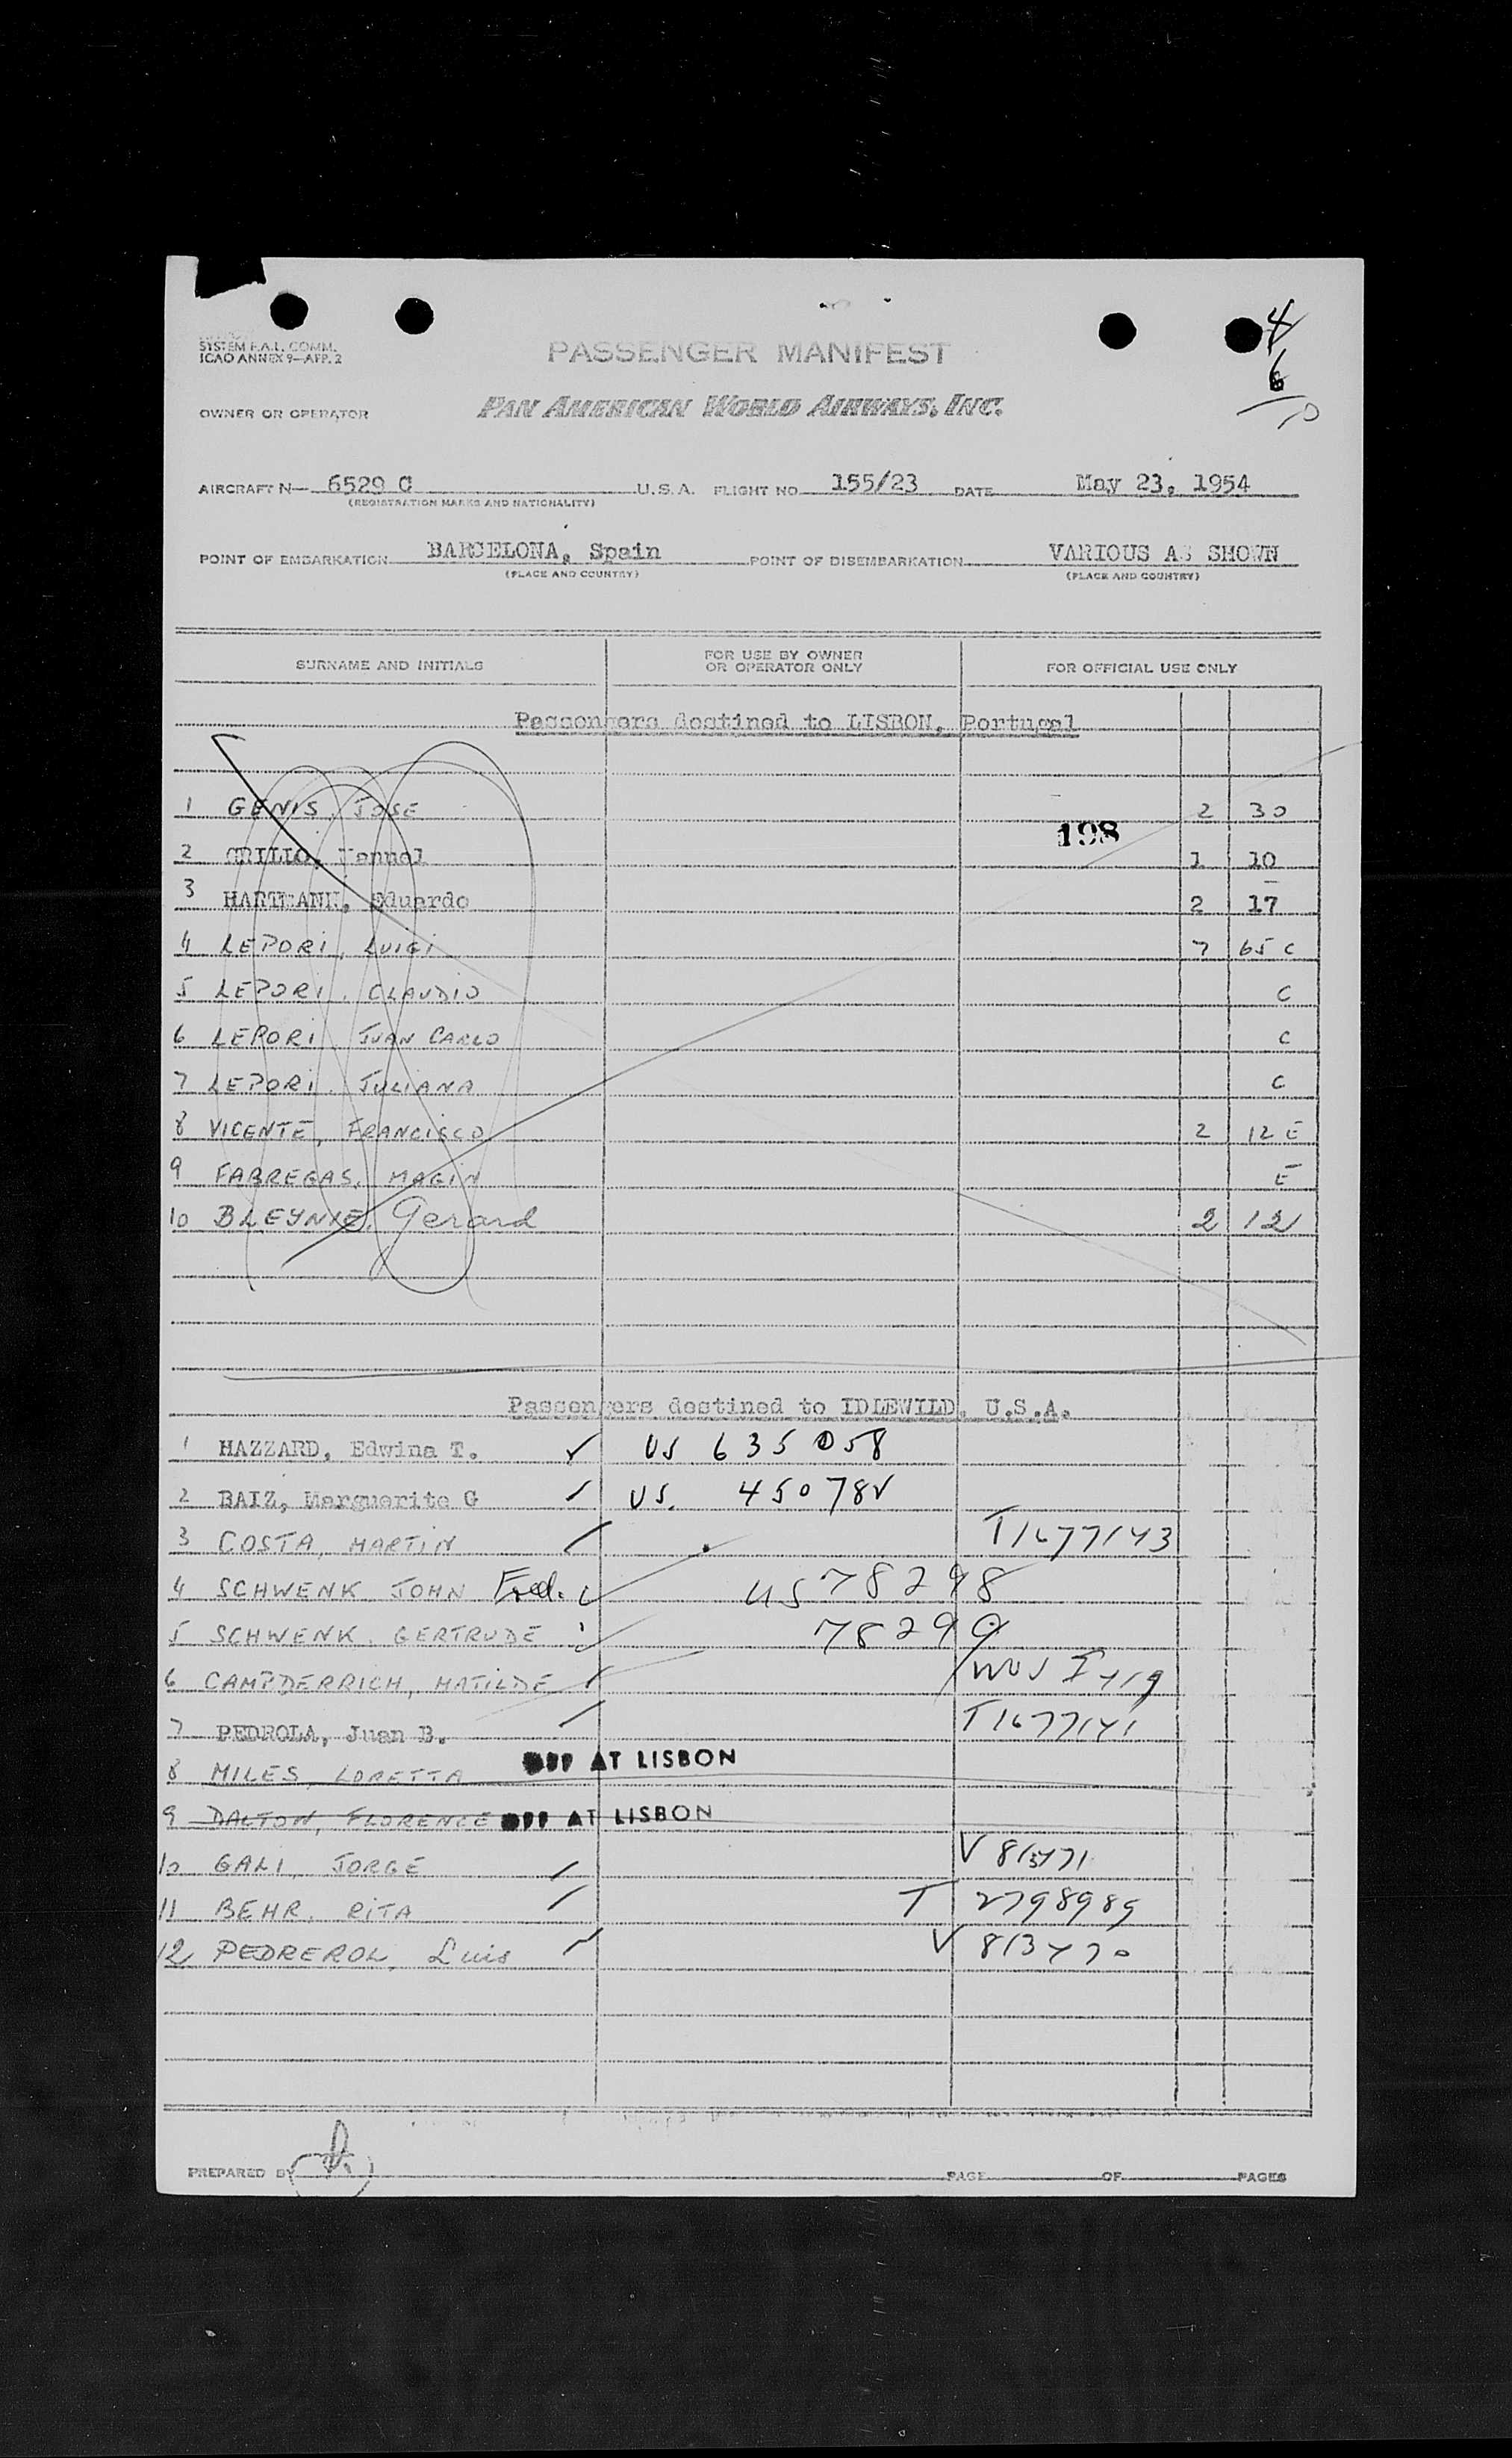 SYSTEM F.A.L. COMM.
ICAO ANNEX 9—APP. 2
PASSENGER MANIFEST
4
6
10
OWNER OR OPERATOR PAN AMERICAN WORLD AIRWAYS, INC.
AIRCRAFT N— 6529 C U.S.A. FLIGHT NO. 155/23 DATE May 23, 1954
(REGISTRATION MARKS AND NATIONALITY)
POINT OF EMBARKATION BARCELONA, Spain POINT OF DISEMBARKATION VARIOUS AS SHOWN
(PLACE AND COUNTRY) (PLACE AND COUNTRY)
SURNAME AND INITIALS FOR USE BY OWNER OR OPERATOR ONLY FOR OFFICIAL USE ONLY
Passengers destined to LISBON, Portugal
1 GENIS, JOSE 2 30
198
2 GRILLO, Manuel 1 10
3 HARTMANN, Eduardo 2 17
4 LEPORI, LUIGI 7 65 C
5 LEPORI, CLAUDIO C
6 LEPORI, JUAN CARLO C
7 LEPORI, JULIANA C
8 VICENTE, FRANCISCO 2 12 E
9 FABREGAS, MAGIN E
10 BLEYNIE, Gerard 2 12
Passengers destined to IDLEWILD, U.S.A.
1 HAZZARD, Edwina T. ✓ US 635058
2 BAIZ, Marguerite G US. 45078
3 COSTA, MARTIN T1677143
4 SCHWENK JOHN Fred. US 78298
5 SCHWENK, GERTRUDE 78299
6 CAMPDERRICH, MATILDE
7 PEDROLA, Juan B. T1677141
8 MILES, LORETTA OFF AT LISBON
9 DALTON, FLORENCE OFF AT LISBON
10 GALI, JORGE V 813471
11 BEHR, RITA T 2798989
12 PEDREROL, Luis V 813470
PREPARED BY PAGE OF PAGES